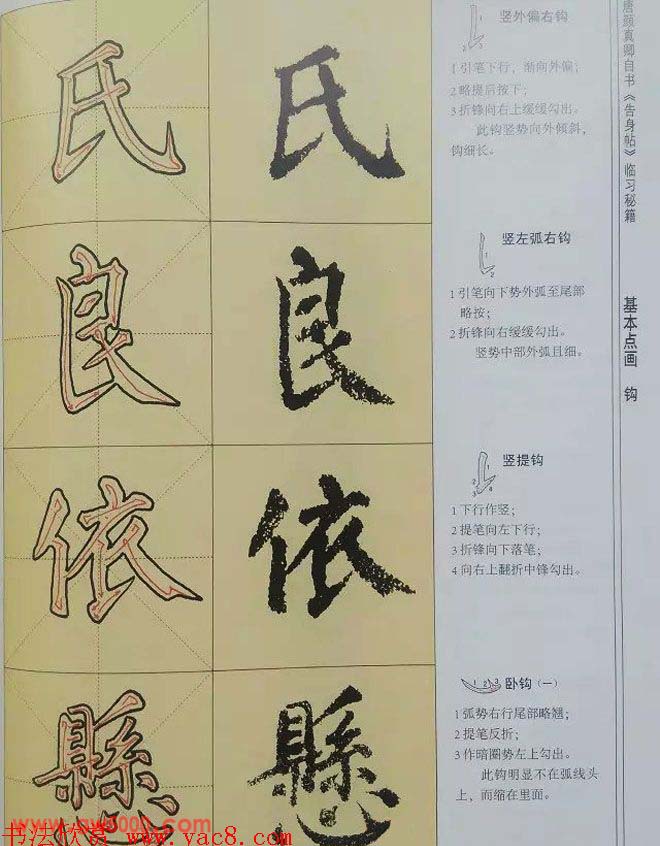 唐颜真卿自书《告身帖》临习秘籍
基本点画 钩
氏 氏
竖外偏右钩
1引笔下行，渐向外偏；
2略提后按下；
3折锋向右上缓缓勾出。
此钩竖势向外倾斜，
钩细长。
良 良
竖左弧右钩
1引笔向下势外弧至尾部
略按；
2折锋向右缓缓勾出。
竖势中部外弧且细。
依 依
竖提钩
1下行作竖；
2提笔向左下行；
3折锋向下落笔；
4向右上翻折中锋勾出。
懸 懸
卧钩（一）
1弧势右行尾部略翘；
2提笔反折；
3作暗圈势左上勾出。
此钩明显不在弧线头
上，而缩在里面。
书法欣赏 www.yac8.com